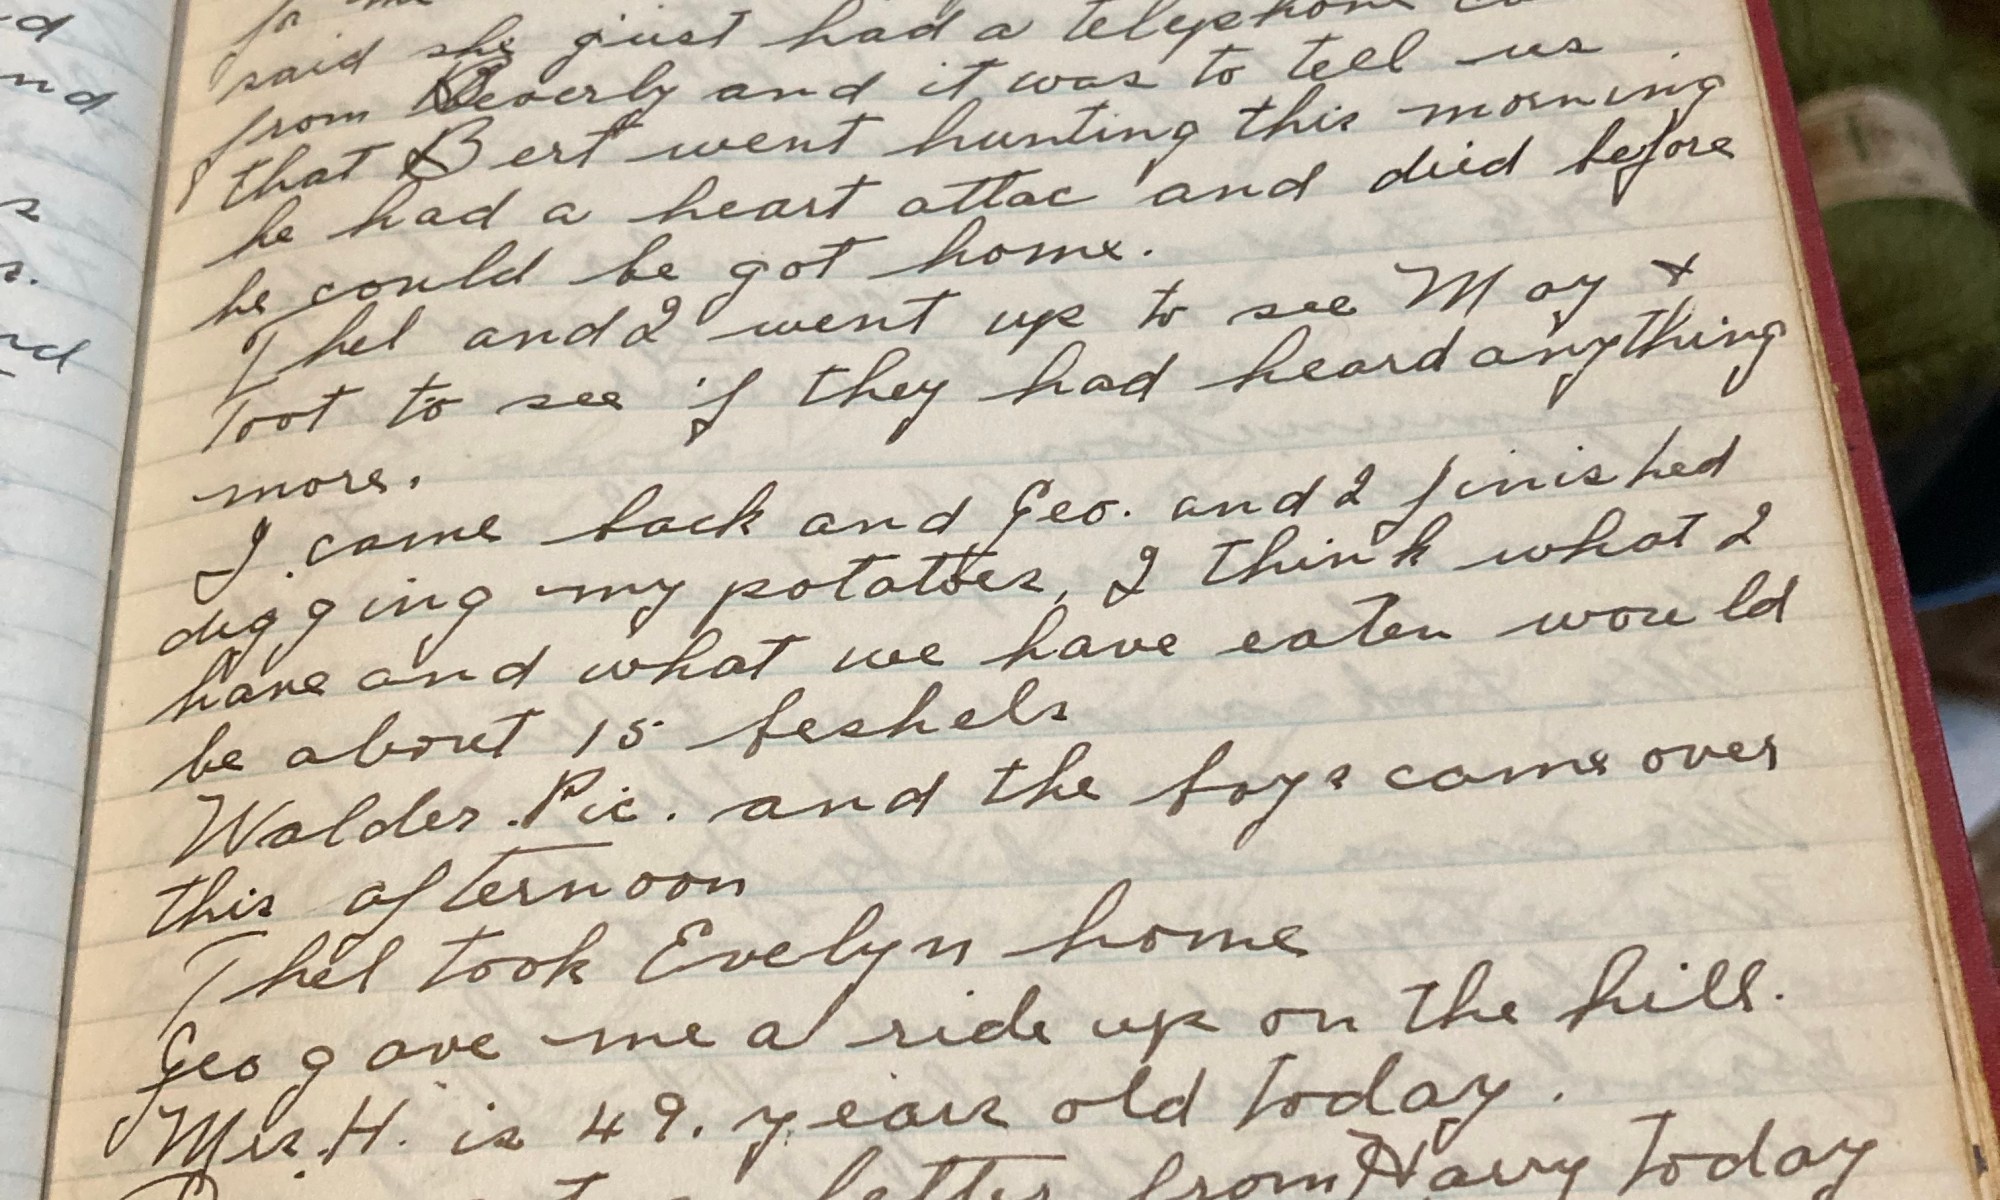 said she just had a telephone
from Beverly and it was to tell us
that Bert went hunting this morning
he had a heart attac and died before
he could be got home.
Thel and I went up to see May +
Toot to see if they had heard anything
more.
I came back and Geo. and I finished
digging my potatoes, I think what I
have and what we have eaten would
be about 15 beshels
Walder. Pic. and the boys came over
this afternoon
Thel took Evelyn home
Geo gave me a ride up on the hill.
Mrs. H. is 49. years old today.
letter from Harry today